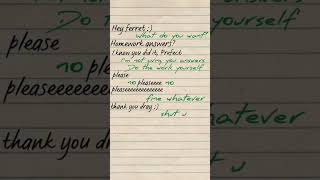 Hey ferret ;)
What do you want?
Homework answers?
I know you did it, Prefect
I'm not giving you answers
Do the work yourself
please
no pleaseeee no
pleaseeeeeeeeeeeeee
fine whatever
thank you dray ;)
shut u